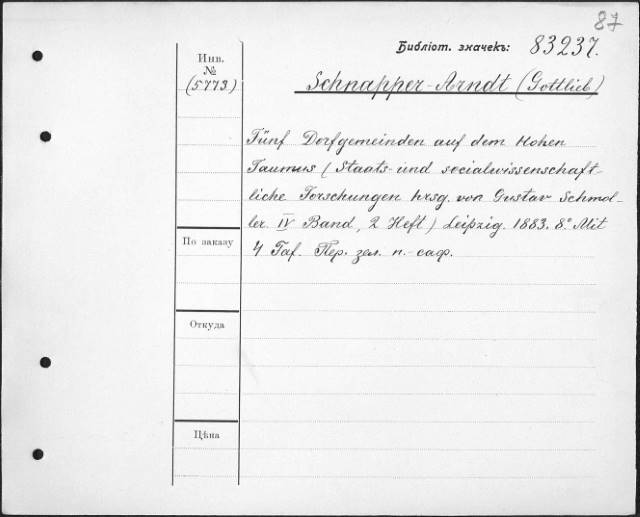 87
Библіот. значекъ: 83237.
Инв.
№
(5773)
Schnapper-Arndt (Gottlieb)
Fünf Dorfgemeinden auf dem Hohen
Taunus (Staats- und socialwissenschaft-
liche Forschungen hrsg. von Gustav Schmol-
ler. IV Band, 2 Heft) Leipzig. 1883. 8º Mit
4 Taf. Пер. зел. п.-саф.
По заказу
Откуда
Цѣна